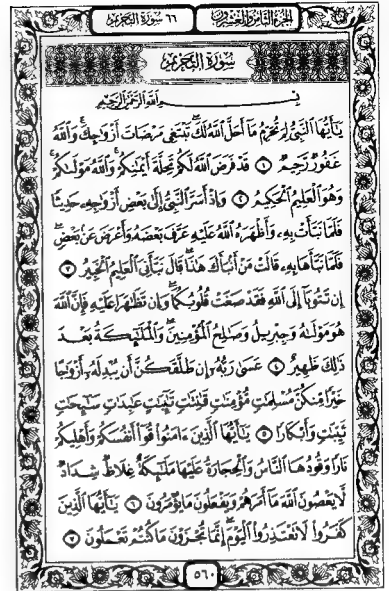 الجزء الثامن والعشرون
٦٦ سورة التحريم
سورة التحريم
بسم الله الرحمن الرحيم
يَٰٓأَيُّهَا ٱلنَّبِىُّ لِمَ تُحَرِّمُ مَآ أَحَلَّ ٱللَّهُ لَكَ ۖ تَبْتَغِى مَرْضَاتَ أَزْوَٰجِكَ ۚ وَٱللَّهُ
غَفُورٌ رَّحِيمٌ ١ قَدْ فَرَضَ ٱللَّهُ لَكُمْ تَحِلَّةَ أَيْمَٰنِكُمْ ۚ وَٱللَّهُ مَوْلَىٰكُمْ ۖ
وَهُوَ ٱلْعَلِيمُ ٱلْحَكِيمُ ٢ وَإِذْ أَسَرَّ ٱلنَّبِىُّ إِلَىٰ بَعْضِ أَزْوَٰجِهِۦ حَدِيثًا
فَلَمَّا نَبَّأَتْ بِهِۦ وَأَظْهَرَهُ ٱللَّهُ عَلَيْهِ عَرَّفَ بَعْضَهُۥ وَأَعْرَضَ عَنۢ بَعْضٍ ۖ
فَلَمَّا نَبَّأَهَا بِهِۦ قَالَتْ مَنْ أَنۢبَأَكَ هَٰذَا ۖ قَالَ نَبَّأَنِىَ ٱلْعَلِيمُ ٱلْخَبِيرُ ٣
إِن تَتُوبَآ إِلَى ٱللَّهِ فَقَدْ صَغَتْ قُلُوبُكُمَا ۖ وَإِن تَظَٰهَرَا عَلَيْهِ فَإِنَّ ٱللَّهَ
هُوَ مَوْلَىٰهُ وَجِبْرِيلُ وَصَٰلِحُ ٱلْمُؤْمِنِينَ ۖ وَٱلْمَلَٰٓئِكَةُ بَعْدَ
ذَٰلِكَ ظَهِيرٌ ٤ عَسَىٰ رَبُّهُۥٓ إِن طَلَّقَكُنَّ أَن يُبْدِلَهُۥٓ أَزْوَٰجًا
خَيْرًا مِّنكُنَّ مُسْلِمَٰتٍ مُّؤْمِنَٰتٍ قَٰنِتَٰتٍ تَٰٓئِبَٰتٍ عَٰبِدَٰتٍ سَٰٓئِحَٰتٍ
ثَيِّبَٰتٍ وَأَبْكَارًا ٥ يَٰٓأَيُّهَا ٱلَّذِينَ ءَامَنُوا۟ قُوٓا۟ أَنفُسَكُمْ وَأَهْلِيكُمْ
نَارًا وَقُودُهَا ٱلنَّاسُ وَٱلْحِجَارَةُ عَلَيْهَا مَلَٰٓئِكَةٌ غِلَاظٌ شِدَادٌ
لَّا يَعْصُونَ ٱللَّهَ مَآ أَمَرَهُمْ وَيَفْعَلُونَ مَا يُؤْمَرُونَ ٦ يَٰٓأَيُّهَا ٱلَّذِينَ
كَفَرُوا۟ لَا تَعْتَذِرُوا۟ ٱلْيَوْمَ ۖ إِنَّمَا تُجْزَوْنَ مَا كُنتُمْ تَعْمَلُونَ ٧
٥٦٠